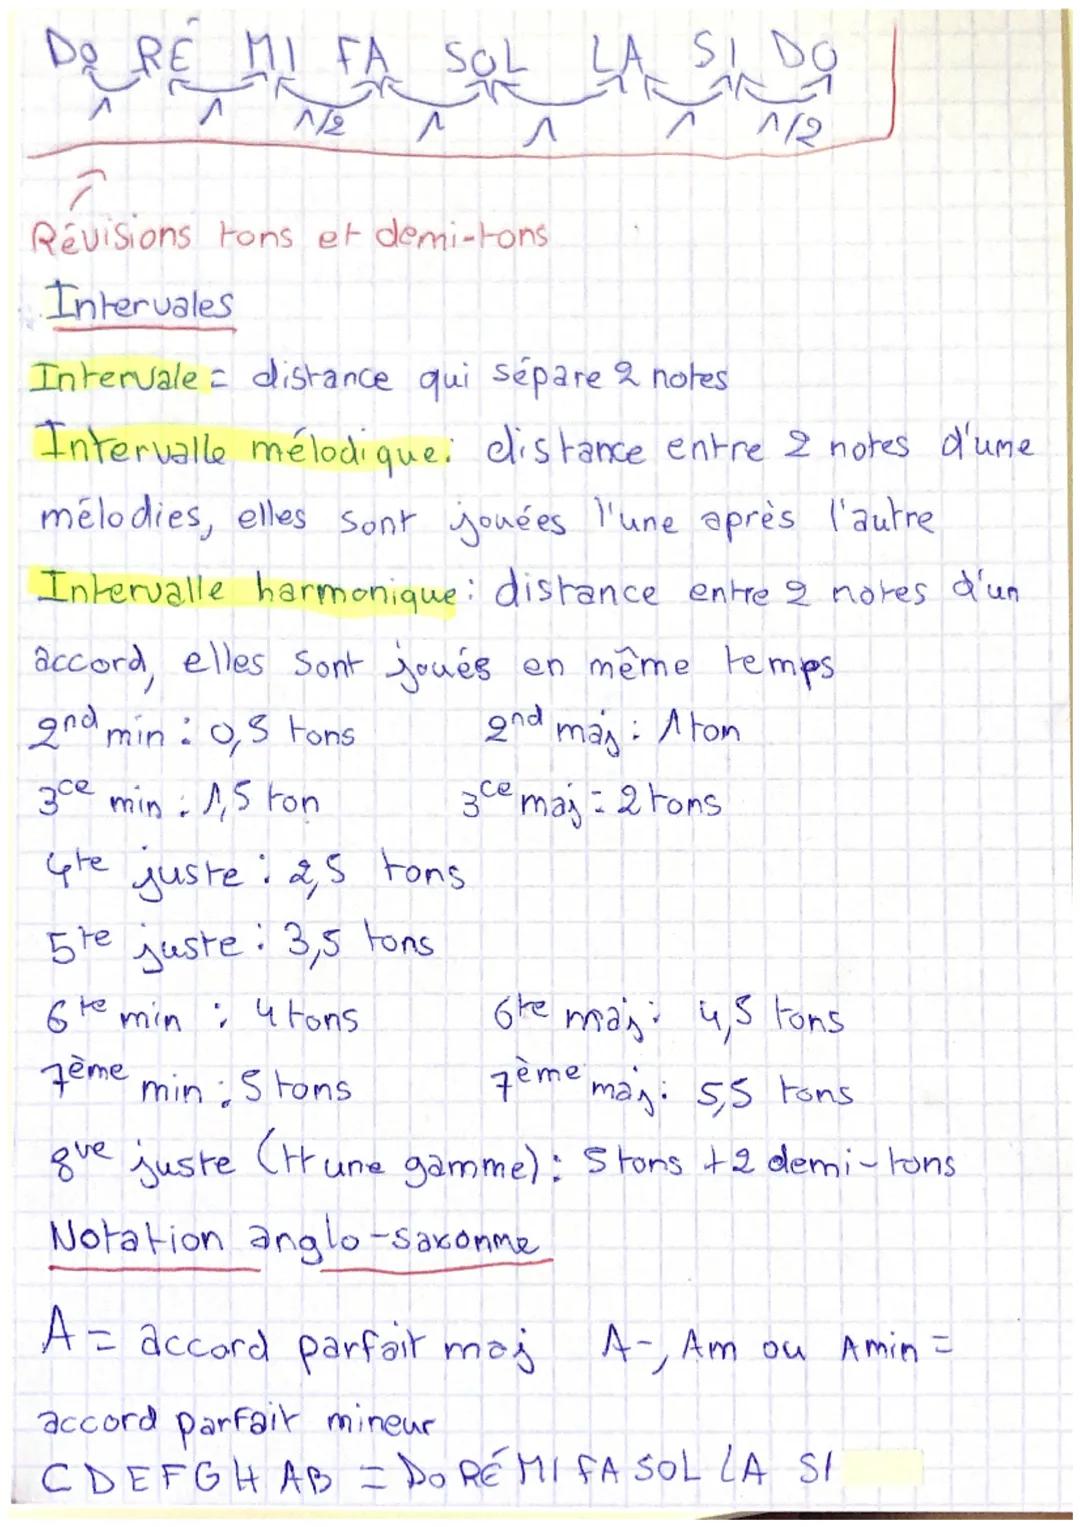 DO RÉ MI FA SOL LA SI DO
1 1 1/2 1 1 1 1/2
Révisions tons et demi-tons
Intervales
Intervale = distance qui sépare 2 notes
Intervalle mélodique: distance entre 2 notes d'une
mélodies, elles sont jouées l'une après l'autre
Intervalle harmonique: distance entre 2 notes d'un
accord, elles sont joués en même temps
2nd min : 0,5 tons 2nd maj : 1 ton
3ce min : 1,5 ton 3ce maj = 2 tons
4te juste : 2,5 tons
5te juste : 3,5 tons
6te min : 4 tons 6te maj : 4,5 tons
7ème min : 5 tons 7ème maj : 5,5 tons
8ve juste (tt une gamme) : 5 tons + 2 demi-tons
Notation anglo-saxonne
A = accord parfait maj A-, Am ou Amin =
accord parfait mineur
C D E F G H A B = DO RÉ MI FA SOL LA SI